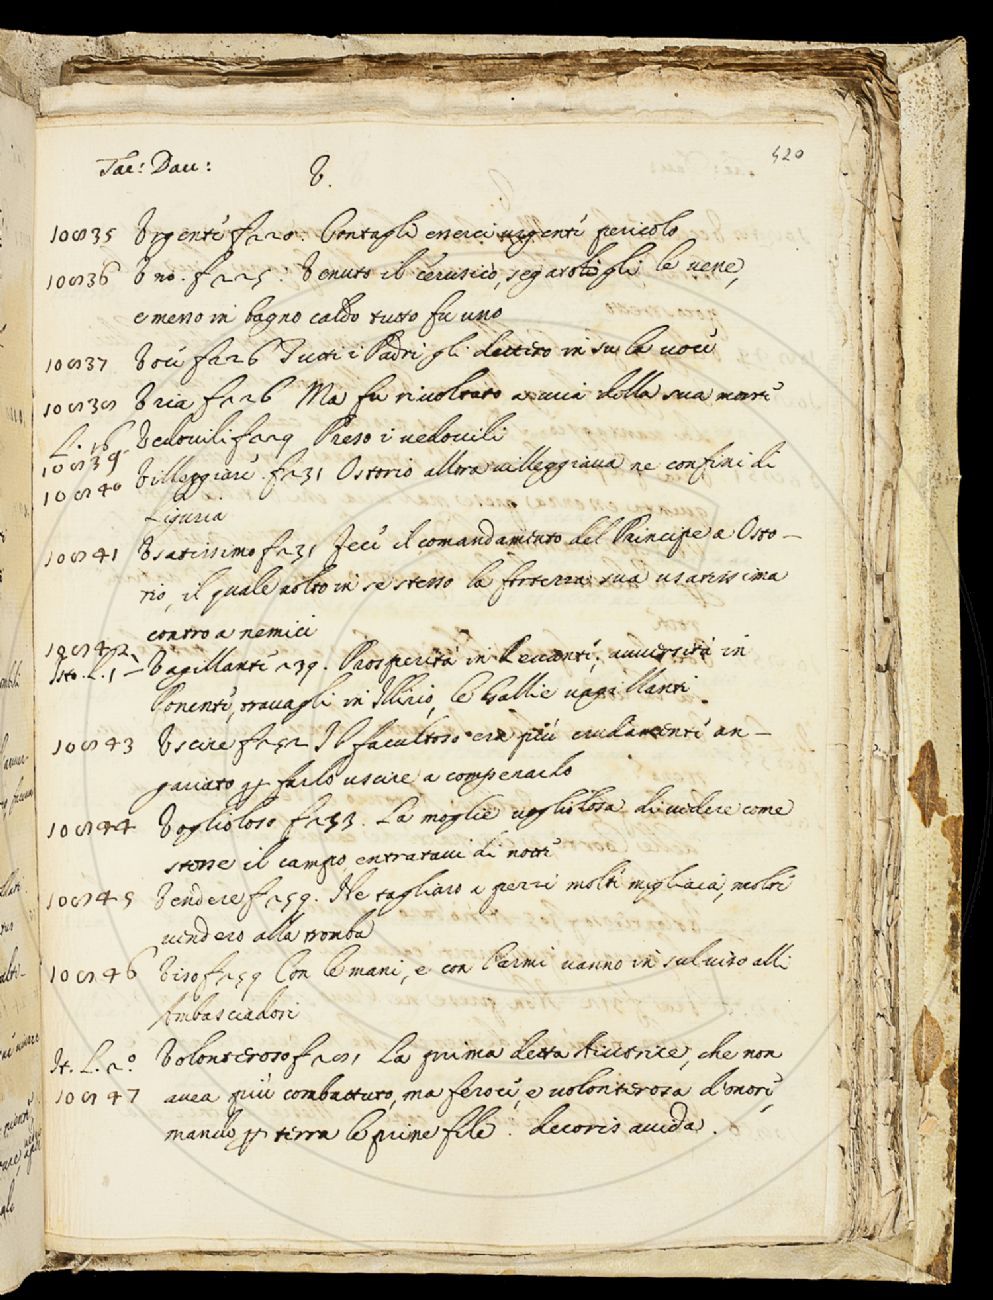 520
Tac: Dav: V.
10835 Urgente f228. Contagli esserci urgenti pericolo
10836 Uno. f225: Venuto il cerusico, segaroligli le vene,
e messo in bagno caldo tutto fu uno
10837 Voce f226 Tutti i Padri gli dettero in su la voce
10838 Via f226 Ma fu rivoltato a via della sua morte
L. 16
10839 Vedovili f229 Preso i vedovili
10840 Villeggiare f231 Ostorio allora villeggiava ne confini di
Liguria
10841 Usatissimo f231 Fece il comandamento del Principe a Osto-
rio, il quale volto in se stesso la fortezza sua usatissima
contro a nemici
10842
Isto. L. 1 - Vagillanti 239. Prosperità in Levante, avversità in
Ponente, travagli in Illirio, le Gallie vagillanti
10843 Uscire f252 Il facultoso era più crudamente an-
gariato p farlo uscire a compenarlo
10844 Voglioloso f233. La moglie vogliolosa di vedere come
stesse il campo entratavi di notte
10845 Vendere f259. Ne tagliaro a pezzi molte migliaia, molti
vendero alla tromba
10846 Viso f259 Con le mani, e con l'armi vanno in sul viso alli
Ambasciadori
It. L. 2º Volonteroso f281 La prima detta Aiutrice, che non
10847 avea più combattuto, ma feroce, e volonterosa d'onore,
mandò p terra le prime file. decoris avida.